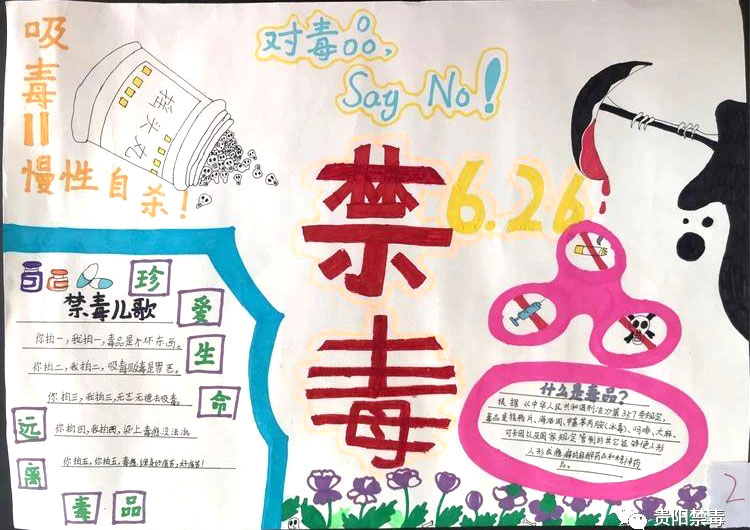 吸毒=慢性自杀!
摇头丸
对毒品,
Say No!
禁毒
6.26
禁毒儿歌
你拍一,我拍一,毒品是个坏东西。
你拍二,我拍二,吸毒贩毒是罪恶。
你拍三,我拍三,无亲无德去吸毒。
你拍四,我拍四,染上毒瘾没法治。
你拍五,你拍五,毒瘾
珍爱生命
远离毒品
什么是毒品?
根据《中华人民共和国刑法》第357条规定,
毒品是指鸦片、海洛因、甲基苯丙胺(冰毒)、吗啡、大麻、
可卡因以及国家规定管制的其它能够使人形
人形成瘾癖的麻醉药品和精神药
品。
2
贵阳禁毒